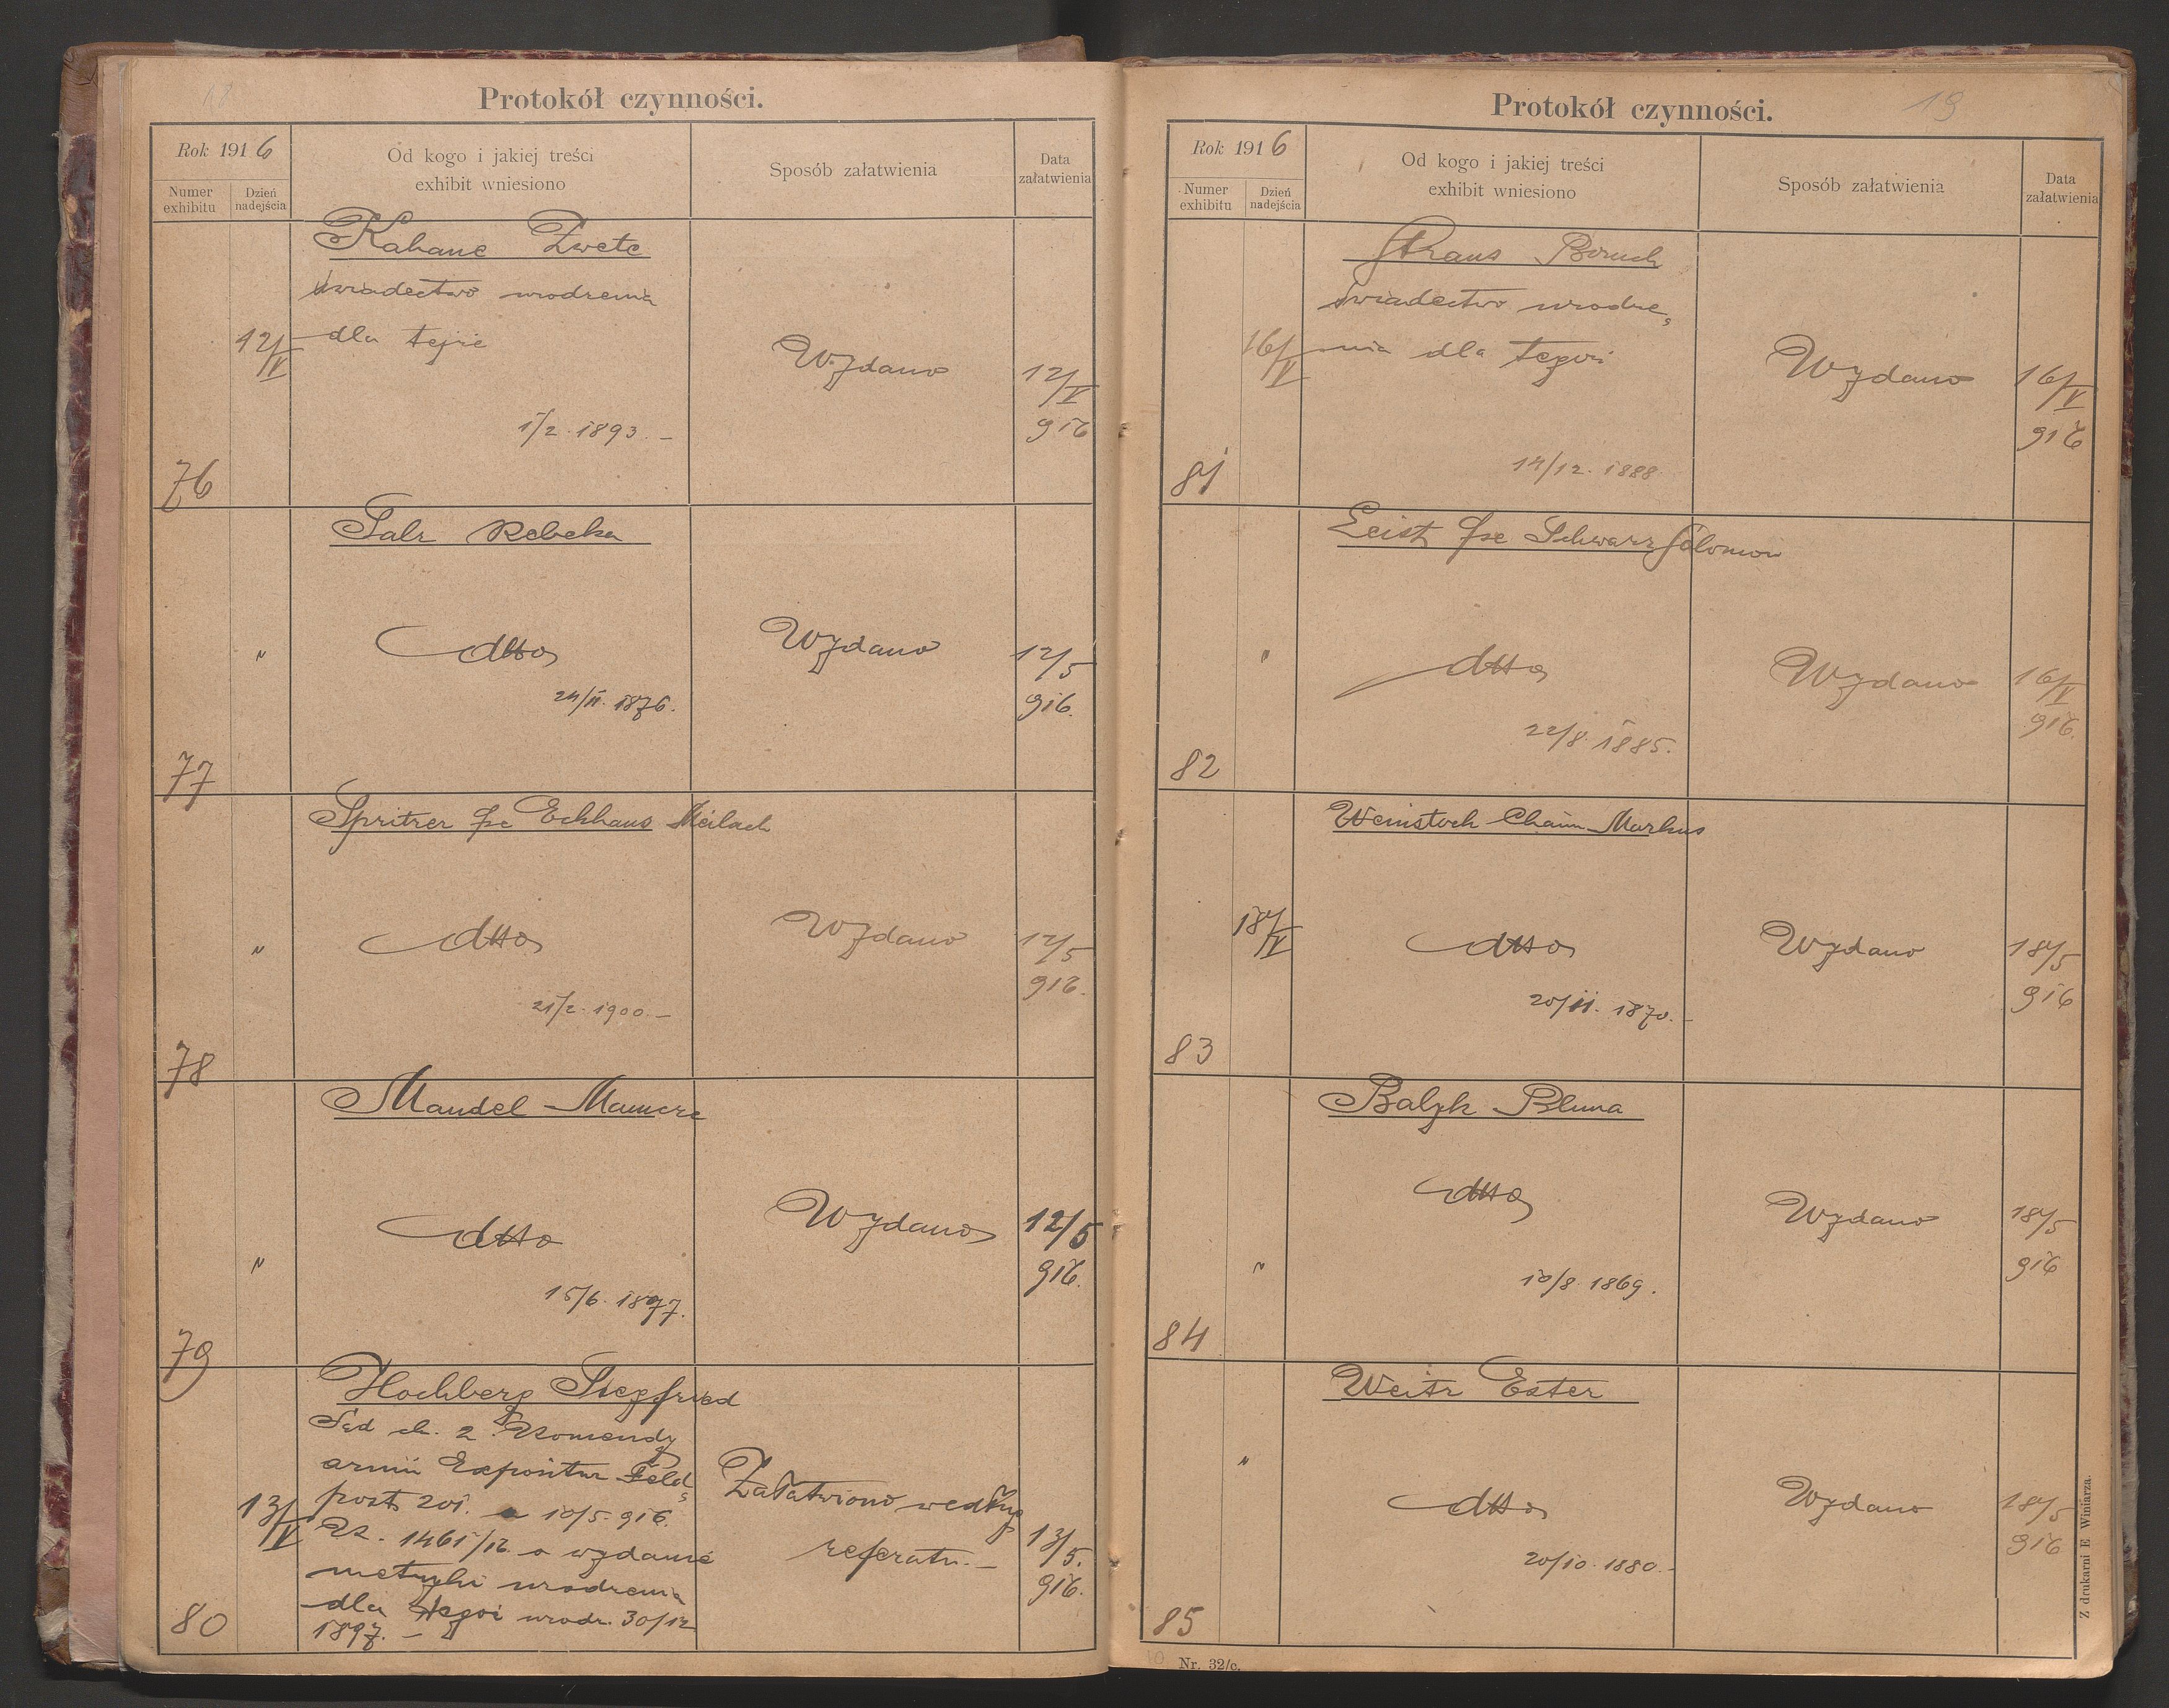 18
Protokół czynności.
Rok 1916
Numer exhibitu
Dzień nadejścia
Od kogo i jakiej treści
exhibit wniesiono
Sposób załatwienia
Data
załatwienia
Kahane Zwete
świadectwo urodzenia
12/V dla tejże
Wydano
12/V
916
1/2. 1893. –
76
Salz Rebeka
" dtto
Wydano
12/5
916.
24/11. 1876.
77
Spritzer fse Eckhaus Meilach
" dtto
Wydano
12/5
916.
21/2. 1900. –
78
Mandel Mamcze
" dtto
Wydano
12/5
916.
15/6. 1897.
79
Hochberg Siegfried
Sąd ck. 2. Komendy
armii Expositur Feld
post 201. 10/5. 916.
13/V K. 1461/16. o wydanie
metryki urodzenia
dla tegoż urodz. 30/12
1897. –
Załatwiono według
referatu. –
13/5.
916.
80
19
Protokół czynności.
Rok 1916
Numer exhibitu
Dzień nadejścia
Od kogo i jakiej treści
exhibit wniesiono
Sposób załatwienia
Data
załatwienia
Straus Boruch
świadectwo urodze
16/V nia dla tegoż
Wydano
16/V
916
14/12. 1888.
81
Leist fse Schwarz Salomon
" dtto
Wydano
16/V
916.
22/8. 1885.
82
Weinstock Chaim Markus
18/V dtto
Wydano
18/5
916
20/11. 1870. –
83
Balyk Bluma
" dtto
Wydano
18/5
916
10/8. 1869.
84
Weitz Ester
" dtto
Wydano
18/5
916
20/10. 1880. –
85
Nr. 32/c.
Z drukarni E Winiarza.